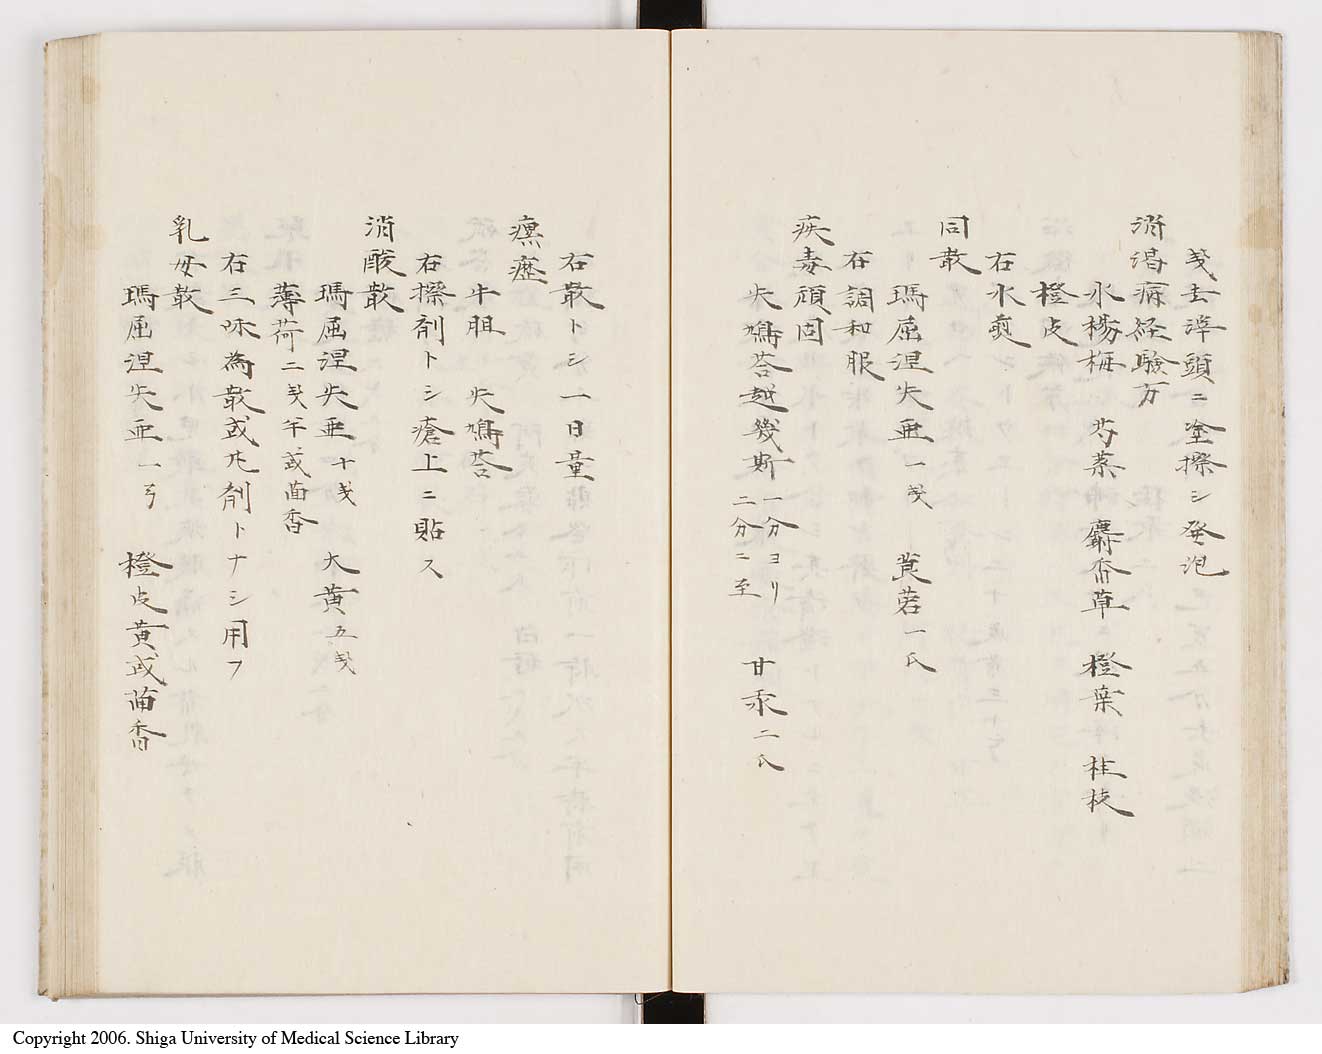 戔去滓頭ニ塗擦シ発泡
消渇病経験方
水楊梅 芍薬 麝香草 橙葉 桂枝
橙皮
右水煎
同散
瑪屈涅失亜一戔 莨菪一氏
右調和服
疾毒頑固
失鳩荅越幾斯 一分ヨリ二分ニ至 甘汞二氏
右散トシ一日量
瘰癧
牛胆 失鳩荅
右擦剤トシ瘡上ニ貼ス
消酸散
瑪屈涅失亜十戔 大黄五戔
薄荷二戔半或茴香
右三味為散或丸剤トナシ用フ
乳母散
瑪屈涅失亜一弓 橙皮黄或茴香
Copyright 2006. Shiga University of Medical Science Library